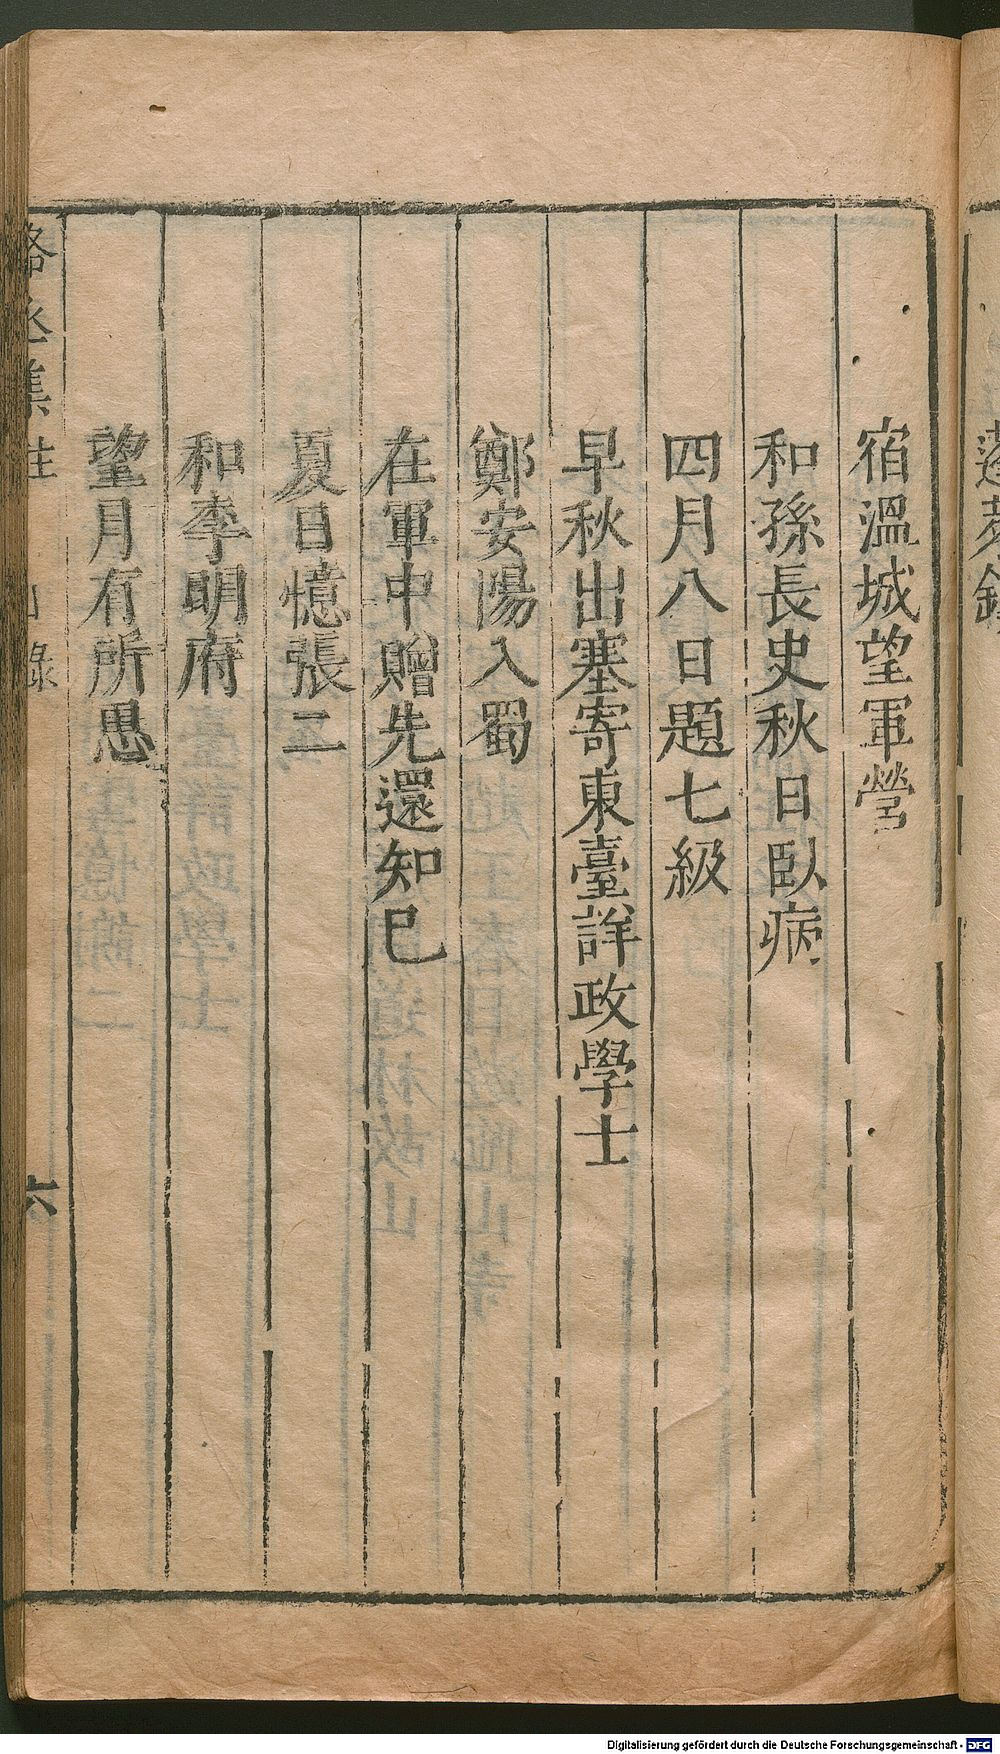 宿溫城望軍營
和孫長史秋日臥病
四月八日題七級
早秋出塞寄東臺詳政學士
鄭安陽入蜀
在軍中贈先還知己
夏日憶張二
和李明府
望月有所思
丞集註
錄
六
Digitalisierung gefördert durch die Deutsche Forschungsgemeinschaft - DFG